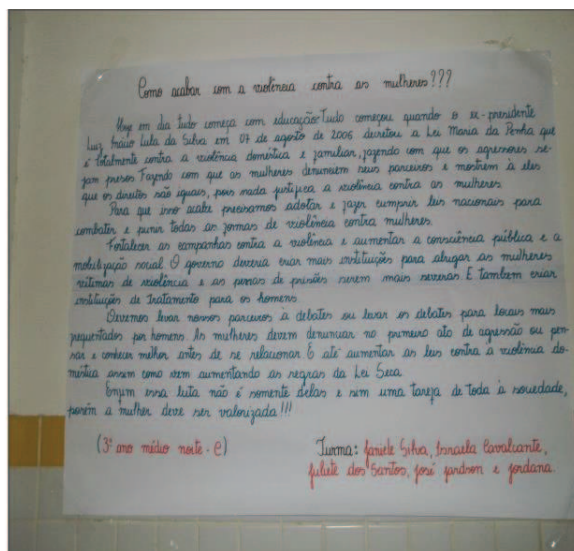 Como acabar com a violência contra as mulheres???
Hoje em dia tudo começa com educação. Tudo começou quando o ex-presidente
Luiz Inácio Lula da Silva em 07 de agosto de 2006 decretou a Lei Maria da Penha que
é totalmente contra a violência doméstica e familiar, fazendo com que os agressores se-
jam presos. Fazendo com que as mulheres denunciem seus parceiros e mostrem à eles
que os direitos são iguais, pois nada justifica a violência contra as mulheres.
Para que isso acabe precisamos adotar e fazer cumprir leis nacionais para
combater e punir todas as formas de violência contra mulheres.
Fortalecer as campanhas contra a violência e aumentar a consciência pública e a
mobilização social. O governo deveria criar mais instituições para abrigar as mulheres
vítimas de violência e as penas de prisões serem mais severas. E também criar
instituições de tratamento para os homens.
Devemos levar nossos parceiros à debates ou levar os debates para locais mais
frequentados por homens. As mulheres devem denunciar no primeiro ato de agressão ou pen-
sar e conhecer melhor antes de se relacionar. E até aumentar as leis contra a violência do-
méstica assim como vem aumentando as regras da Lei Seca.
Enfim essa luta não é somente delas e sim uma tarefa de toda à sociedade,
porém a mulher deve ser valorizada!!!
(3º ano médio noite - C)
Turma: Janiele Silva, Israela Cavalcante,
Juliete dos Santos, José Jardson e Jordana.